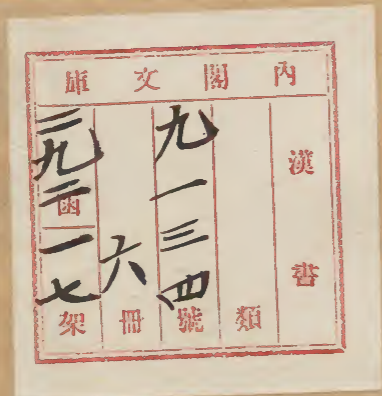 內閣文庫
漢書
類
九一三四號
六冊
二九二函
一七架